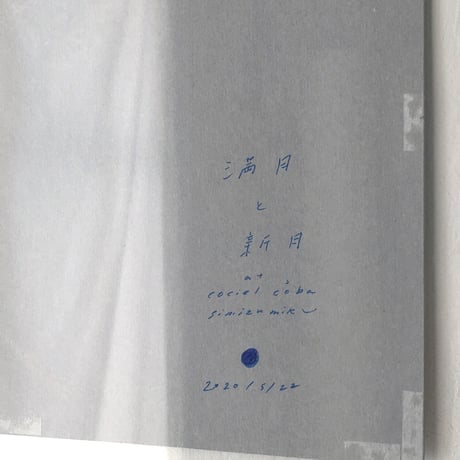 満月
と
新月
at
cociel còba
simizumiku
2020/5/22